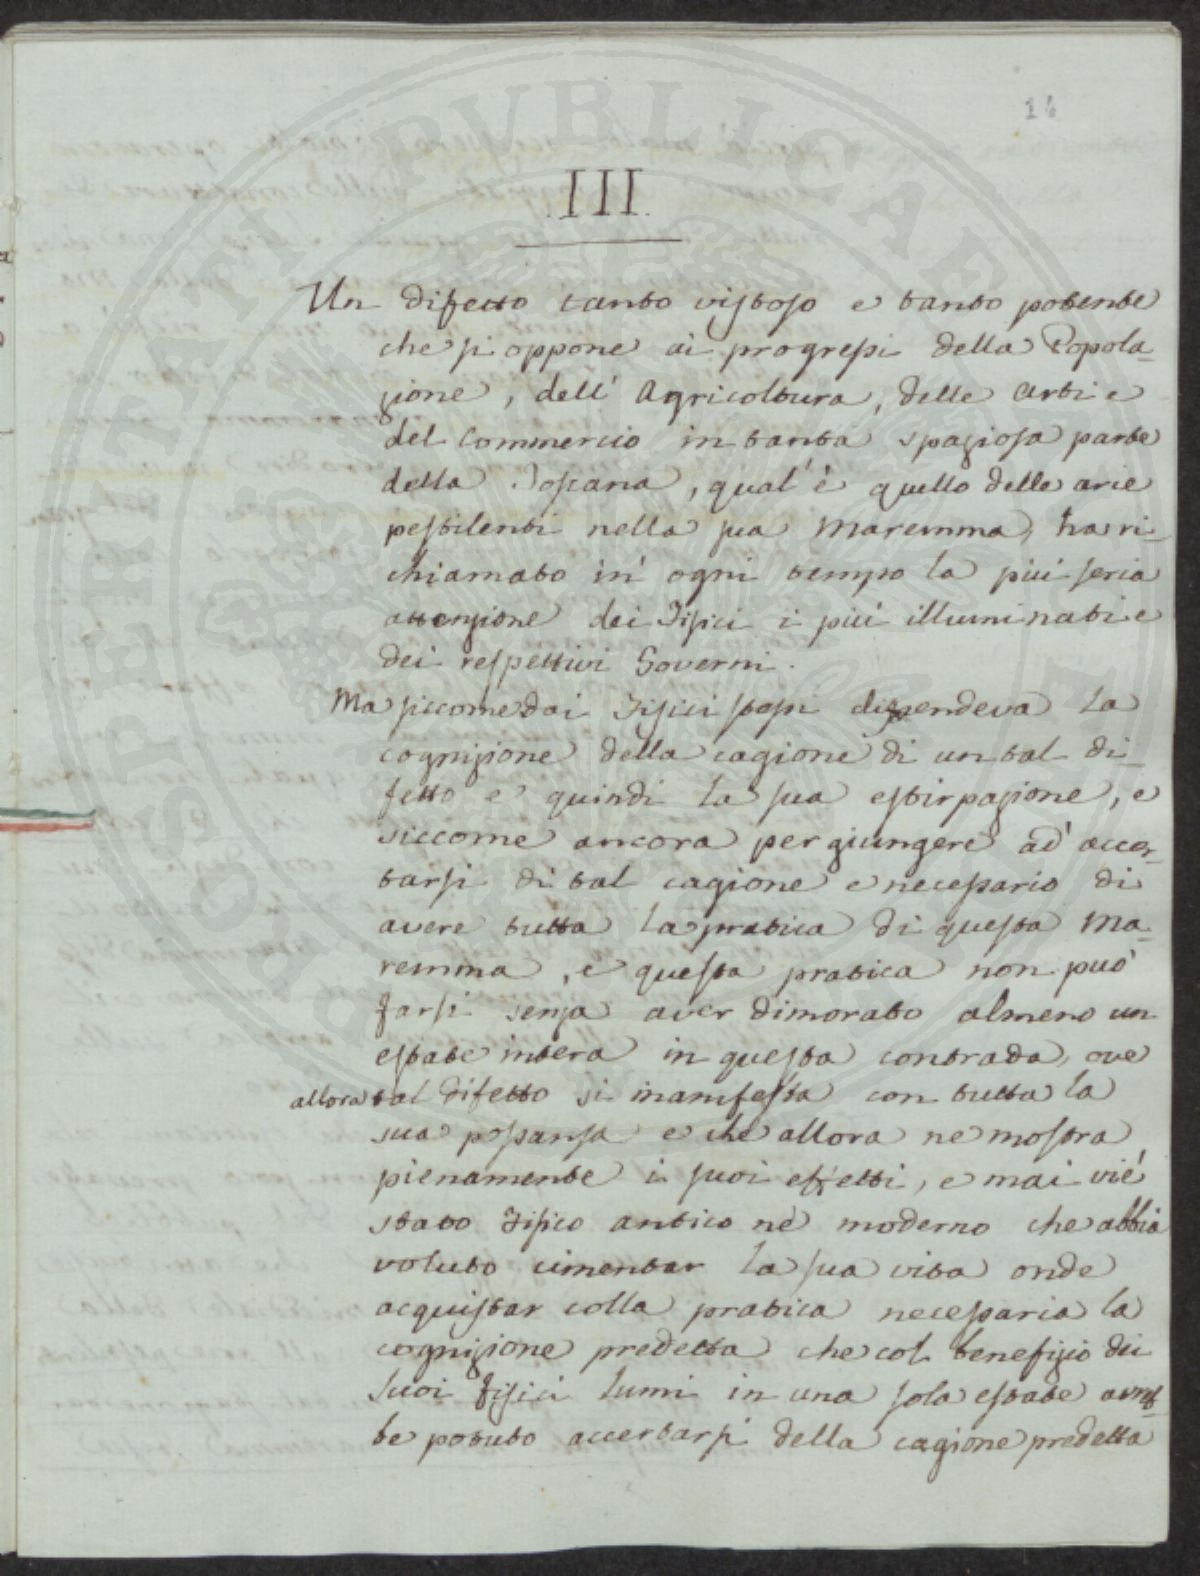 14
III.
Un difetto tanto vistoso e tanto potente
che si oppone ai progressi della Popola-
zione, dell' Agricoltura, delle Arti e
del Commercio in tanta spaziosa parte
della Toscana, qual' è quello delle arie
pestilenti nella sua Maremma, ha ri-
chiamato in ogni tempo la più seria
attenzione dei Fisici i più illuminati e
dei respettivi Governi.
Ma siccome dai Fisici stessi dipendeva la
cognizione della cagione di un tal di-
fetto e quindi la sua estirpazione, e
siccome ancora per giungere ad accer-
tarsi di tal cagione e necessario di
avere tutta la pratica di questa Ma-
remma, e questa pratica non può
farsi senza aver dimorato almeno un
estate intera in questa contrada, ove
allora tal difetto si manifesta con tutta la
sua possanza e che allora ne mostra
pienamente i suoi effetti, e mai vi è
stato Fisico antico nè moderno che abbia
voluto cimentar la sua vita onde
acquistar colla pratica necessaria la
cognizione predetta che col benefizio dei
suoi fisici lumi in una sola estate avreb-
be potuto accertarsi della cagione predetta
PUBLICAE
PROSPERITATI